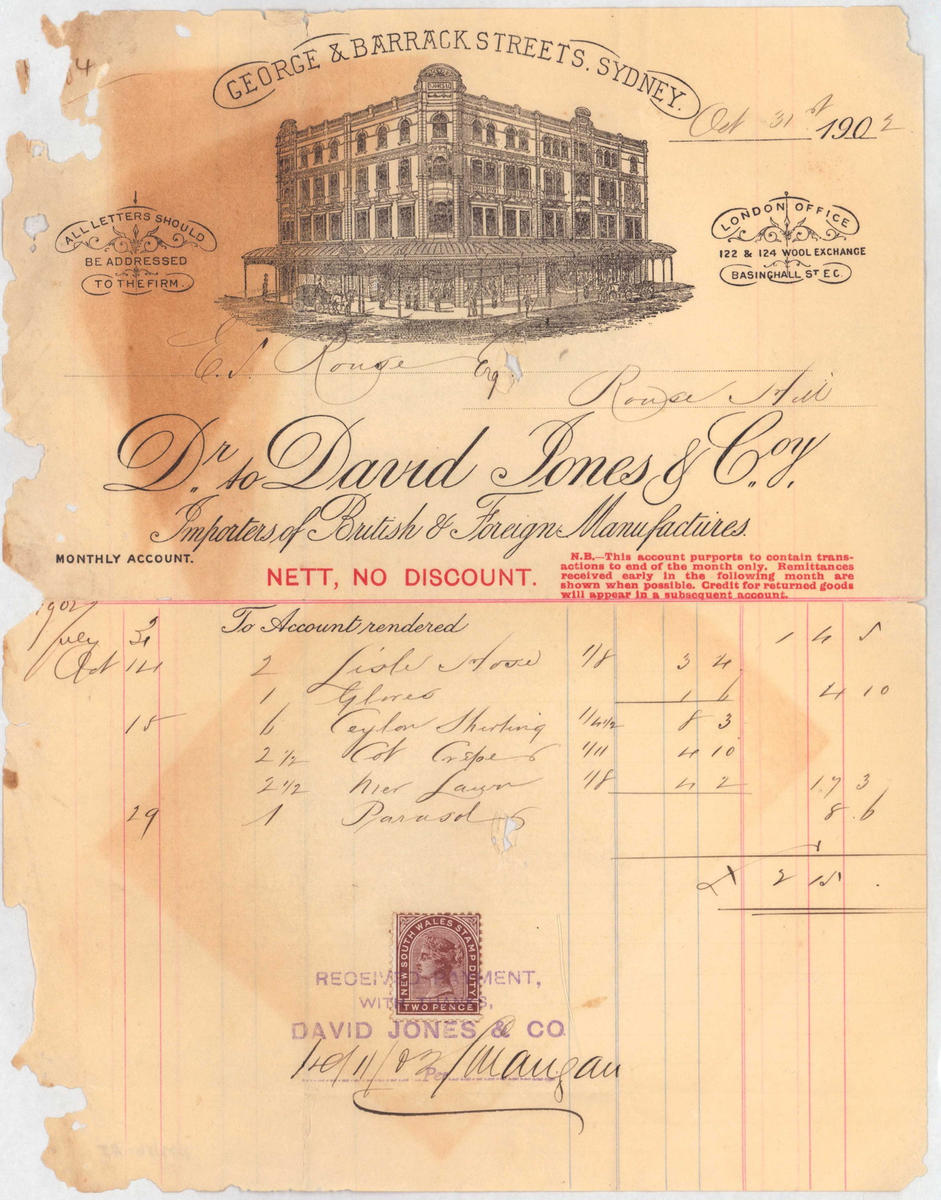 GEORGE & BARRACK STREETS. SYDNEY.
Oct 31st 1902
ALL LETTERS SHOULD
BE ADDRESSED
TO THE FIRM.
LONDON OFFICE
122 & 124 WOOL EXCHANGE
BASINGHALL ST E.C.
Rouse Esq
Rouse Hill
Dr. to David Jones & Coy.
Importers of British & Foreign Manufactures.
MONTHLY ACCOUNT.
NETT, NO DISCOUNT.
N.B.—This account purports to contain trans-
actions to end of the month only. Remittances
received early in the following month are
shown when possible. Credit for returned goods
will appear in a subsequent account.
1902
July 31 To Account rendered 1 4 5
Oct 14 2 Lisle Hose 1/8 3 4
1 Gloves 1 6 4 10
15 6 Ceylon Shirting 1/4½ 8 3
2½ Cot Crepe 1/11 4 10
2½ Mer Lawn 1/8 4 2 17 3
29 1 Parasol 8 . 6
£ 2 15 .
NEW SOUTH WALES STAMP DUTY
TWO PENCE
RECEIVED PAYMENT,
WITH THANKS,
DAVID JONES & CO
Per
14/11/02 / Mangan